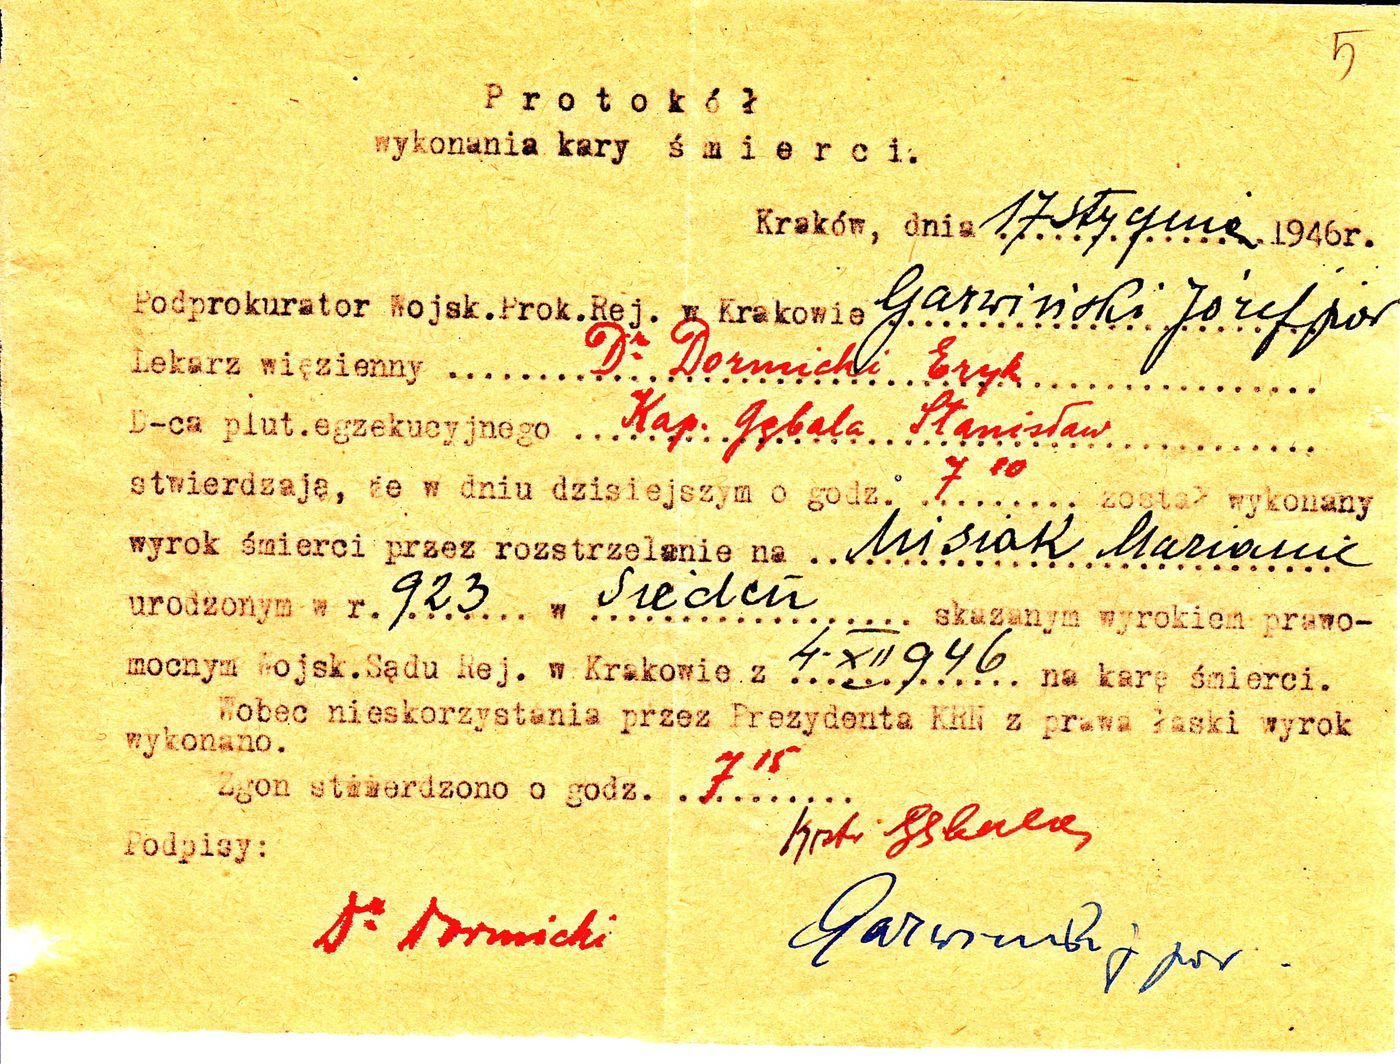 5
Protokół
wykonania kary śmierci.
Kraków, dnia 17 stycznia 1946r.
Podprokurator Wojsk.Prok.Rej. w Krakowie Garwiński Józef por
Lekarz więzienny Dr Dormicki Eryk
D-ca plut.egzekucyjnego Kap. Gębala Stanisław
stwierdzają, że w dniu dzisiejszym o godz. 7 10 został wykonany
wyrok śmierci przez rozstrzelanie na Misiak Marianie
urodzonym w r. 923 w skazanym wyrokiem prawo-
mocnym Wojsk.Sądu Rej. w Krakowie z 4.XII 946 na karę śmierci.
Wobec nieskorzystania przez Prezydenta KRN z prawa łaski wyrok
wykonano.
Zgon stwierdzono o godz. 7 15
Gębala
Podpisy:
Dr Dormicki
Garwiński por